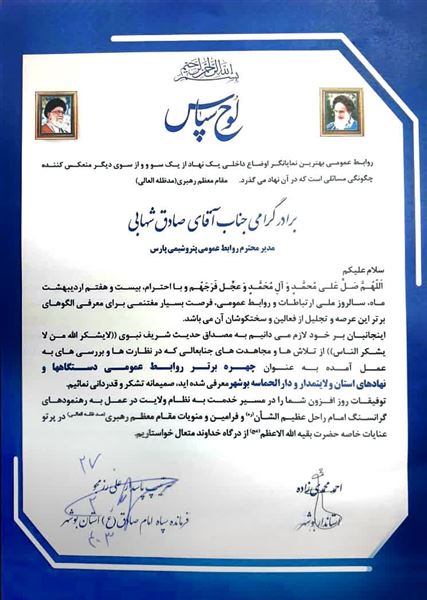 بسم الله الرحمن الرحیم
لوح سپاس
روابط عمومی بهترین نمایانگر اوضاع داخلی یک نهاد از یک سو و و از سوی دیگر منعکس کننده
چگونگی مسائلی است که در آن نهاد می گذرد. مقام معظم رهبری(مدظله العالی)
برادر گرامی جناب آقای صادق شهابی
مدیر محترم روابط عمومی پتروشیمی پارس
سلام علیکم
اَللّهُمَّ صَلِّ عَلی مُحمَّدٍ وَ آلِ مُحَمَّدٍ وَ عجِّل فَرَجَهُم و با احترام، بیست و هفتم اردیبهشت
ماه، سالروز ملی ارتباطات و روابط عمومی، فرصت بسیار مغتنمی برای معرفی الگوهای
برتر این عرصه و تجلیل از فعالین و سختکوشان آن می باشد.
اینجانبان بر خود لازم می دانیم به مصداق حدیث شریف نبوی ((لایشکر الله من لا
یشکر الناس)) از تلاش ها و مجاهدت های جنابعالی که در نظارت ها و بررسی های به
عمل آمده به عنوان چهره برتر روابط عمومی دستگاهها و
نهادهای استان ولایتمدار و دارالحماسه بوشهر معرفی شده اید، صمیمانه تشکر و قدردانی نمائیم.
توفیقات روز افزون شما را در مسیر خدمت به نظام ولایت در عمل به رهنمودهای
گرانسنگ امام راحل عظیم الشأن(ره) و فرامین و منویات مقام معظم رهبری(مدظله العالی) در پرتو
عنایات خاصه حضرت بقیه الله الاعظم(عج) از درگاه خداوند متعال خواستاریم.
احمد محمدی زاده
استاندار بوشهر
سرتیپ پاسدار علی رزمجو
فرمانده سپاه امام صادق (ع) استان بوشهر